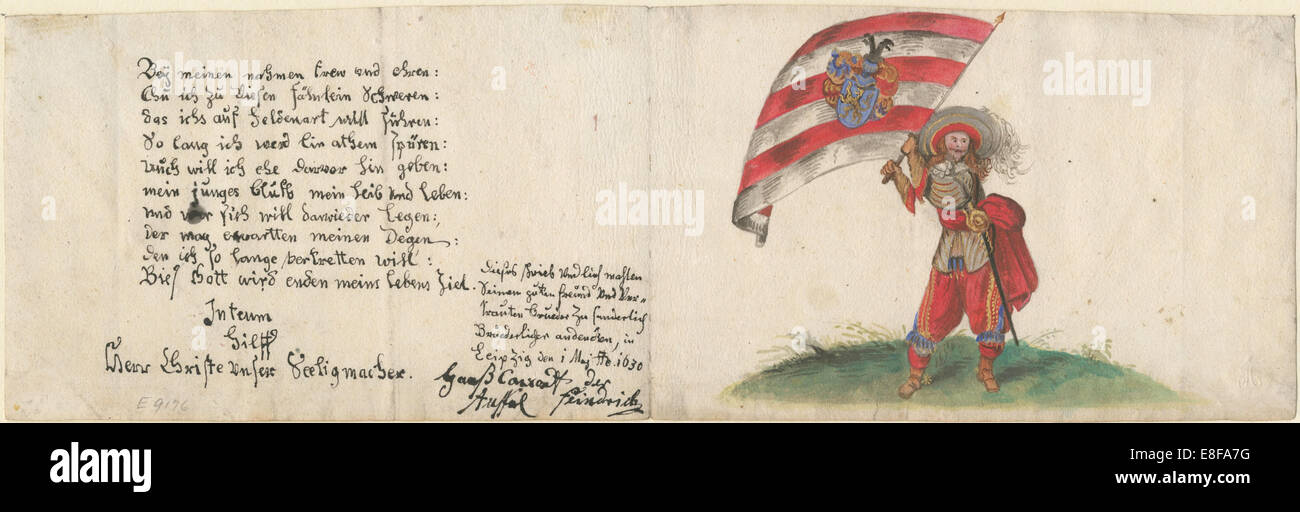 Bey meinen nahmen trew und ehren:
Thu ich zu diesen fähnlein Schweren:
das ichs auf heldenart will führen:
So lang ich werd ein athem spüren:
Auch will ich ehe darvor hin geben:
mein junges bluth mein leib und leben:
und wer sich will darwieder legen:
der mag erwartten meinen Degen:
den ich so lange vertretten will:
Bies Gott wird enden meins lebens ziel.
Interim
Hilff
Herr Christe unser Seeligmacher.
dieses schrieb und lies mahlen
Seinen guten freund und ver=
trauten bruder zu sunderlich
Brüderlicher andencken, in
Leipzig den 1 Maj Ao. 1630
der
E 9176
alamy
alamy
alamy
alamy
alamy stock photo
E8FA7G
www.alamy.com